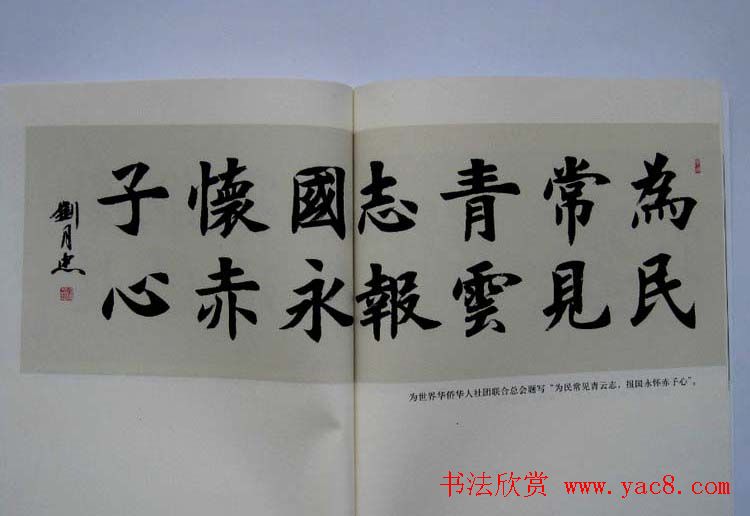 為民
常見
青雲
志報
國永
懷赤
子心
劉月忠
为世界华侨华人社团联合总会题写“为民常见青云志，报国永怀赤子心”。
书法欣赏 www.yac8.com